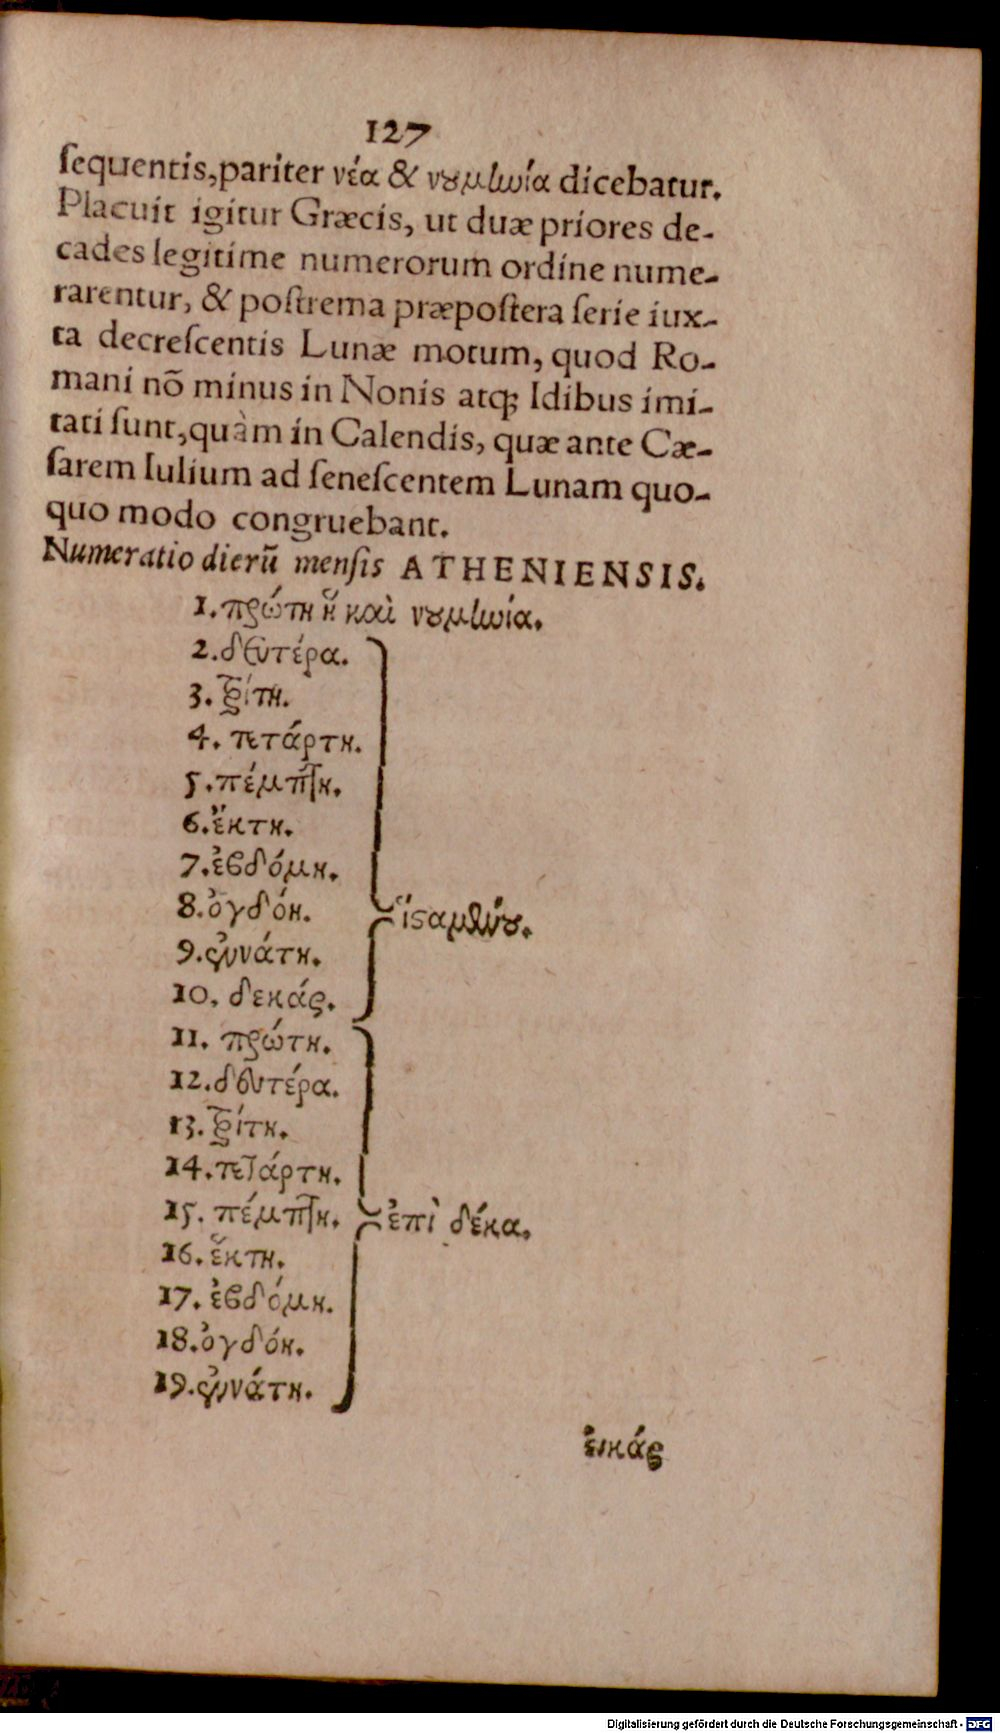 127
ſequentis,pariter νέα & νουμηνία dicebatur.
Placuit igitur Græcis, ut duæ priores de-
cades legitime numerorum ordine nume-
rarentur, & poſtrema præpoſtera ſerie iux-
ta decreſcentis Lunæ motum, quod Ro-
mani nō minus in Nonis atq; Idibus imi-
tati ſunt,quàm in Calendis, quæ ante Cæ-
ſarem Iulium ad ſeneſcentem Lunam quo-
quo modo congruebant.
Numeratio dierū menſis ATHENIENSIS.
1. πρώτη ἢ καὶ νουμηνία.
2. δευτέρα.
3. τρίτη.
4. τετάρτη.
5. πέμπτη.
6. ἕκτη.
7. ἑβδόμη.
8. ὀγδόη.
ἱσαμένου.
9. ἐννάτη.
10. δεκάς.
11. πρώτη.
12. δευτέρα.
13. τρίτη.
14. τετάρτη.
15. πέμπτη. ἐπὶ δέκα.
16. ἕκτη.
17. ἑβδόμη.
18. ὀγδόη.
19. ἐννάτη.
εἰκάς
Digitalisierung gefördert durch die Deutsche Forschungsgemeinschaft - DFG